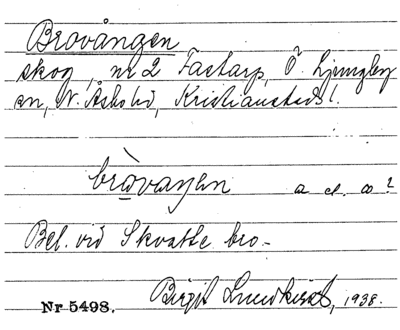 Brovången
skog, nr 2 Fastarp, Ö. Ljungby
sn, N. Åsbo hd, Kristianstads l.
bròvaŋen a el. ɷ?
Bel. vid Skvatte bro.
Birgit Lundkvist, 1938.
Nr 5498.